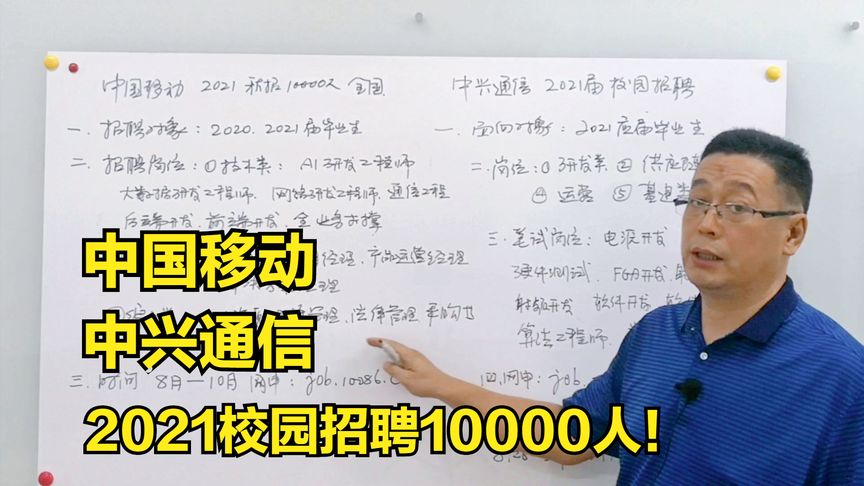 中国移动 2021 秋招10000人 全国
一. 招聘对象：2020. 2021届毕业生
二. 招聘岗位：①技术类：AI研发工程师
大数据研发工程师. 网络研发工程师. 通信工程
后端开发. 前端开发. 全业务支撑
经理. 产品运营经理
管理. 法律管理 采购
三. 时间 8月—10月 网申：job.10086.c
中兴通信 2021届校园招聘
一. 面向对象：2021应届毕业生
二. 岗位：①研发类 ② 供应链
④ 运营 ⑤ 基建类
三. 笔试岗位：电源开发
硬件测试. FGA开发.
射频开发 软件开发.
算法工程师.
四. 网申：job.
中国移动
中兴通信
2021校园招聘10000人!